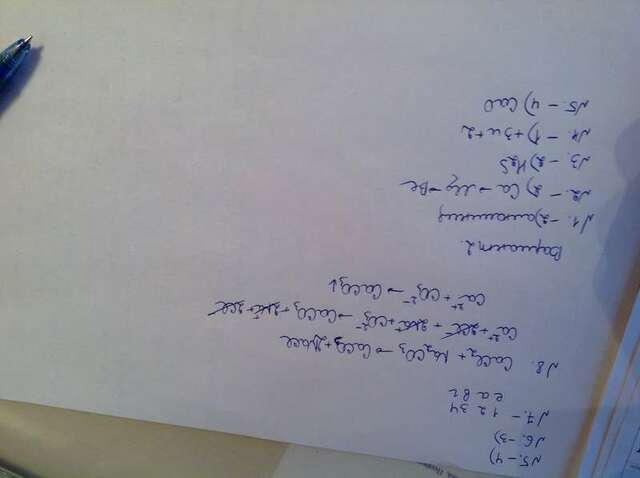 N5. - 4)
N6. - 3)
N7. - 1 2 3 4
е а в г
N8. CaCl₂ + Na₂CO₃ → CaCO₃ + 2NaCl
Ca²⁺ + 2Cl⁻ + 2Na⁺ + CO₃²⁻ → CaCO₃ + 2Na⁺ + 2Cl⁻
Ca²⁺ + CO₃²⁻ → CaCO₃↓
Вариант 2.
N1. - 2) алюминий
N2. - 2) Ca → Mg → Be
N3. - 2) H₂S
N4. - 1) +3 и +2
N5. - 4) CaO